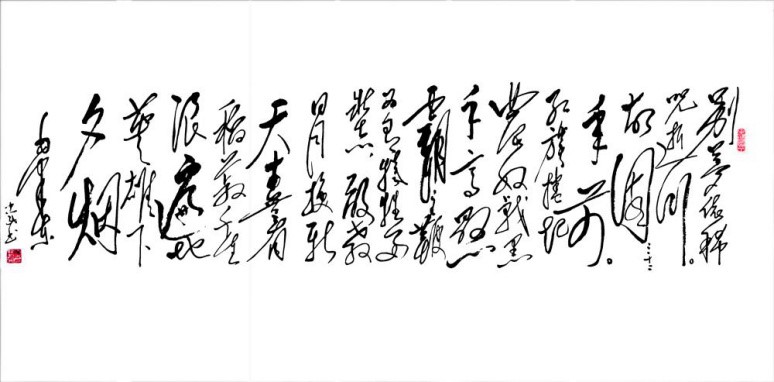 别梦依稀
咒逝川。
故园三十二
年前。
红旗捲起
农奴戟黑
手高悬
霸主鞭
为有牺牲多
壮志敢教
日月换新
天喜看
稻菽千重
浪遍地
英雄下
夕烟
毛泽东